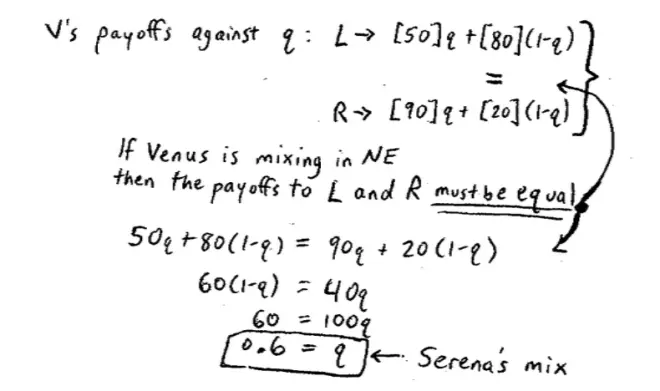 V's payoffs against q: L→ [50]q+[80](1-q)
=
R→ [90]q+[20](1-q)
If Venus is mixing in NE
then the payoffs to L and R must be equal
50q+80(1-q) = 90q + 20(1-q)
60(1-q) = 40q
60 = 100q
0.6 = q ← Serena's mix